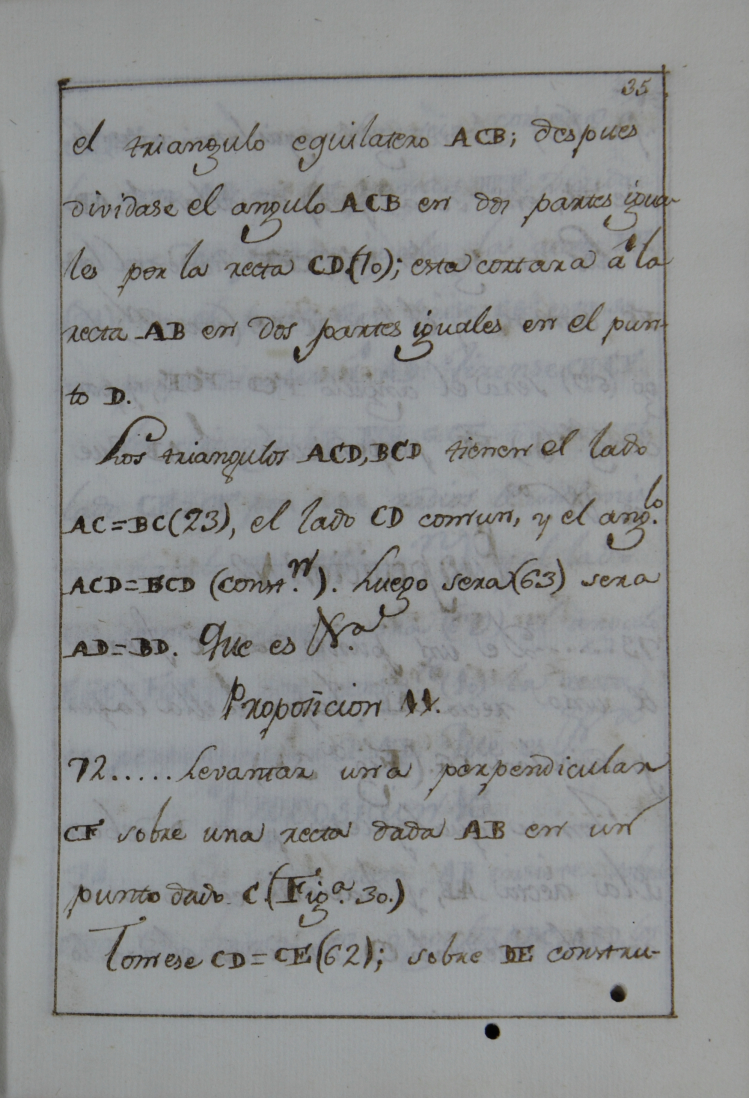 35
el triangulo equilatero ACB; despues
dividase el angulo ACB en dos partes igua-
les por la recta CD(70); esta cortara á la
recta AB en dos partes iguales en el pun-
to D.
Los triangulos ACD, BCD tienen el lado
AC=BC(23), el lado CD comun, y el ang.lo
ACD=BCD (const.n). Luego sera (63) sera
AD=BD. Que es
Proposicion 11.
72..... Levantar una perpendicular
CF sobre una recta dada AB en un
punto dado C.(Fig.a 30.)
Tomese CD=CE(62); sobre DE constru-